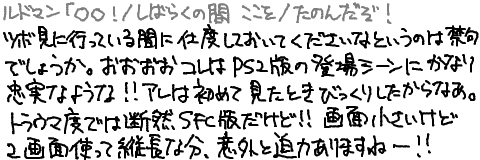 ルドマン「○○!/しばらくの間 ここを/たのんだぞ!
ツボ見に行っている間に仕度しておいてくださいなというのは禁句
でしょうか。おおおおコレはPS2版の登場シーンにかなり
忠実なような!!アレは初めて見たときびっくりしたからなあ。
トラウマ度では断然、SFC版だけど!!画面小さいけど
2画面使って縦長な分、意外と迫力ありますねー!!